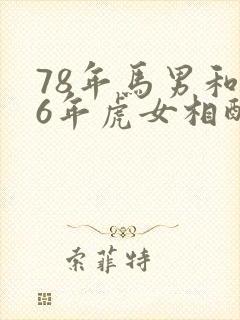 78年馬男和
6年虎女相配
索菲特